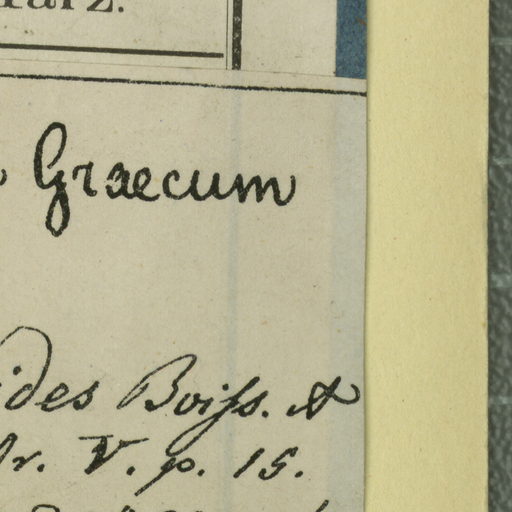 Graecum
ides Boiss. &
r. V. p. 15.